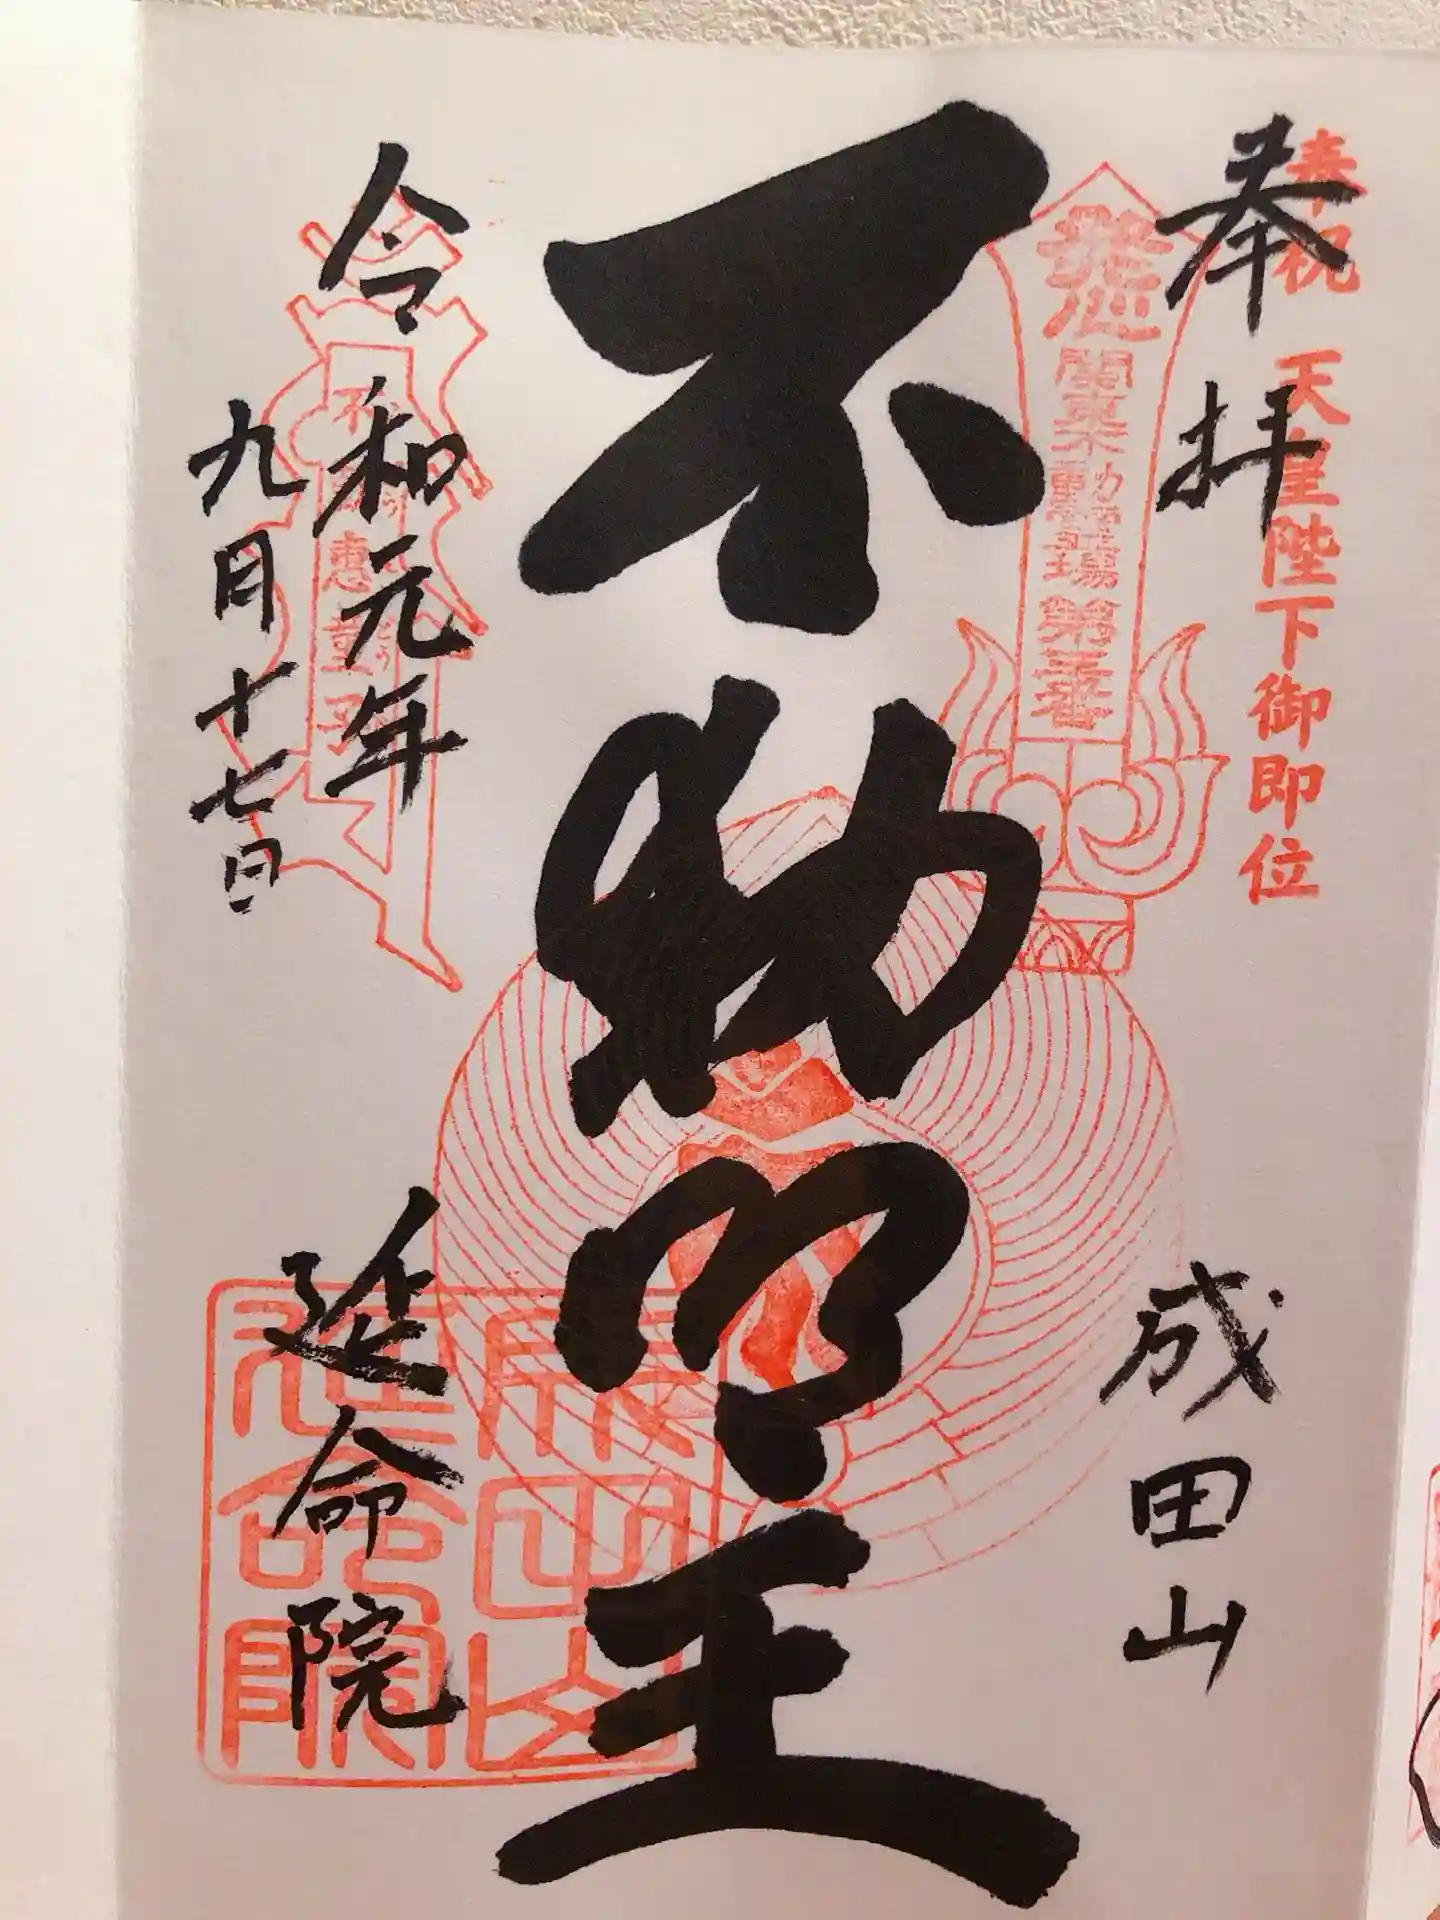 奉祝 天皇陛下御即位
奉拝
成田山
発心
関東三十六不動霊場
第三番
不動明王
令和元年
九月十七日
延命院
成田山
延命院